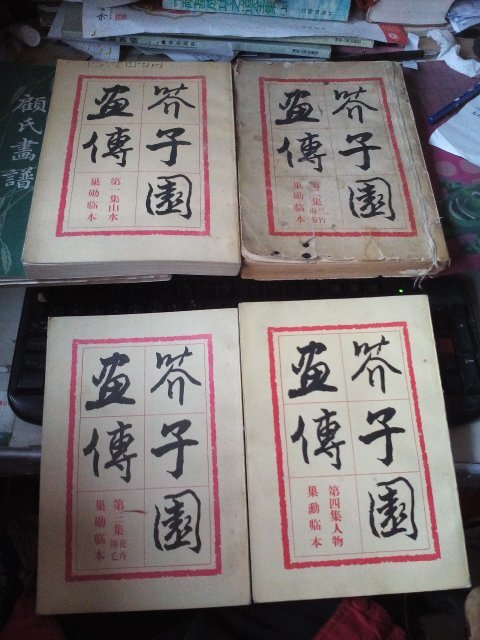 顧氏畫譜
芥子園
畫傳
第一集山水
巢勋临本
芥子園
畫傳
第二集兰竹梅菊
巢勋临本
芥子園
畫傳
第三集花卉翎毛
巢勋临本
芥子園
畫傳
第四集人物
巢勋临本